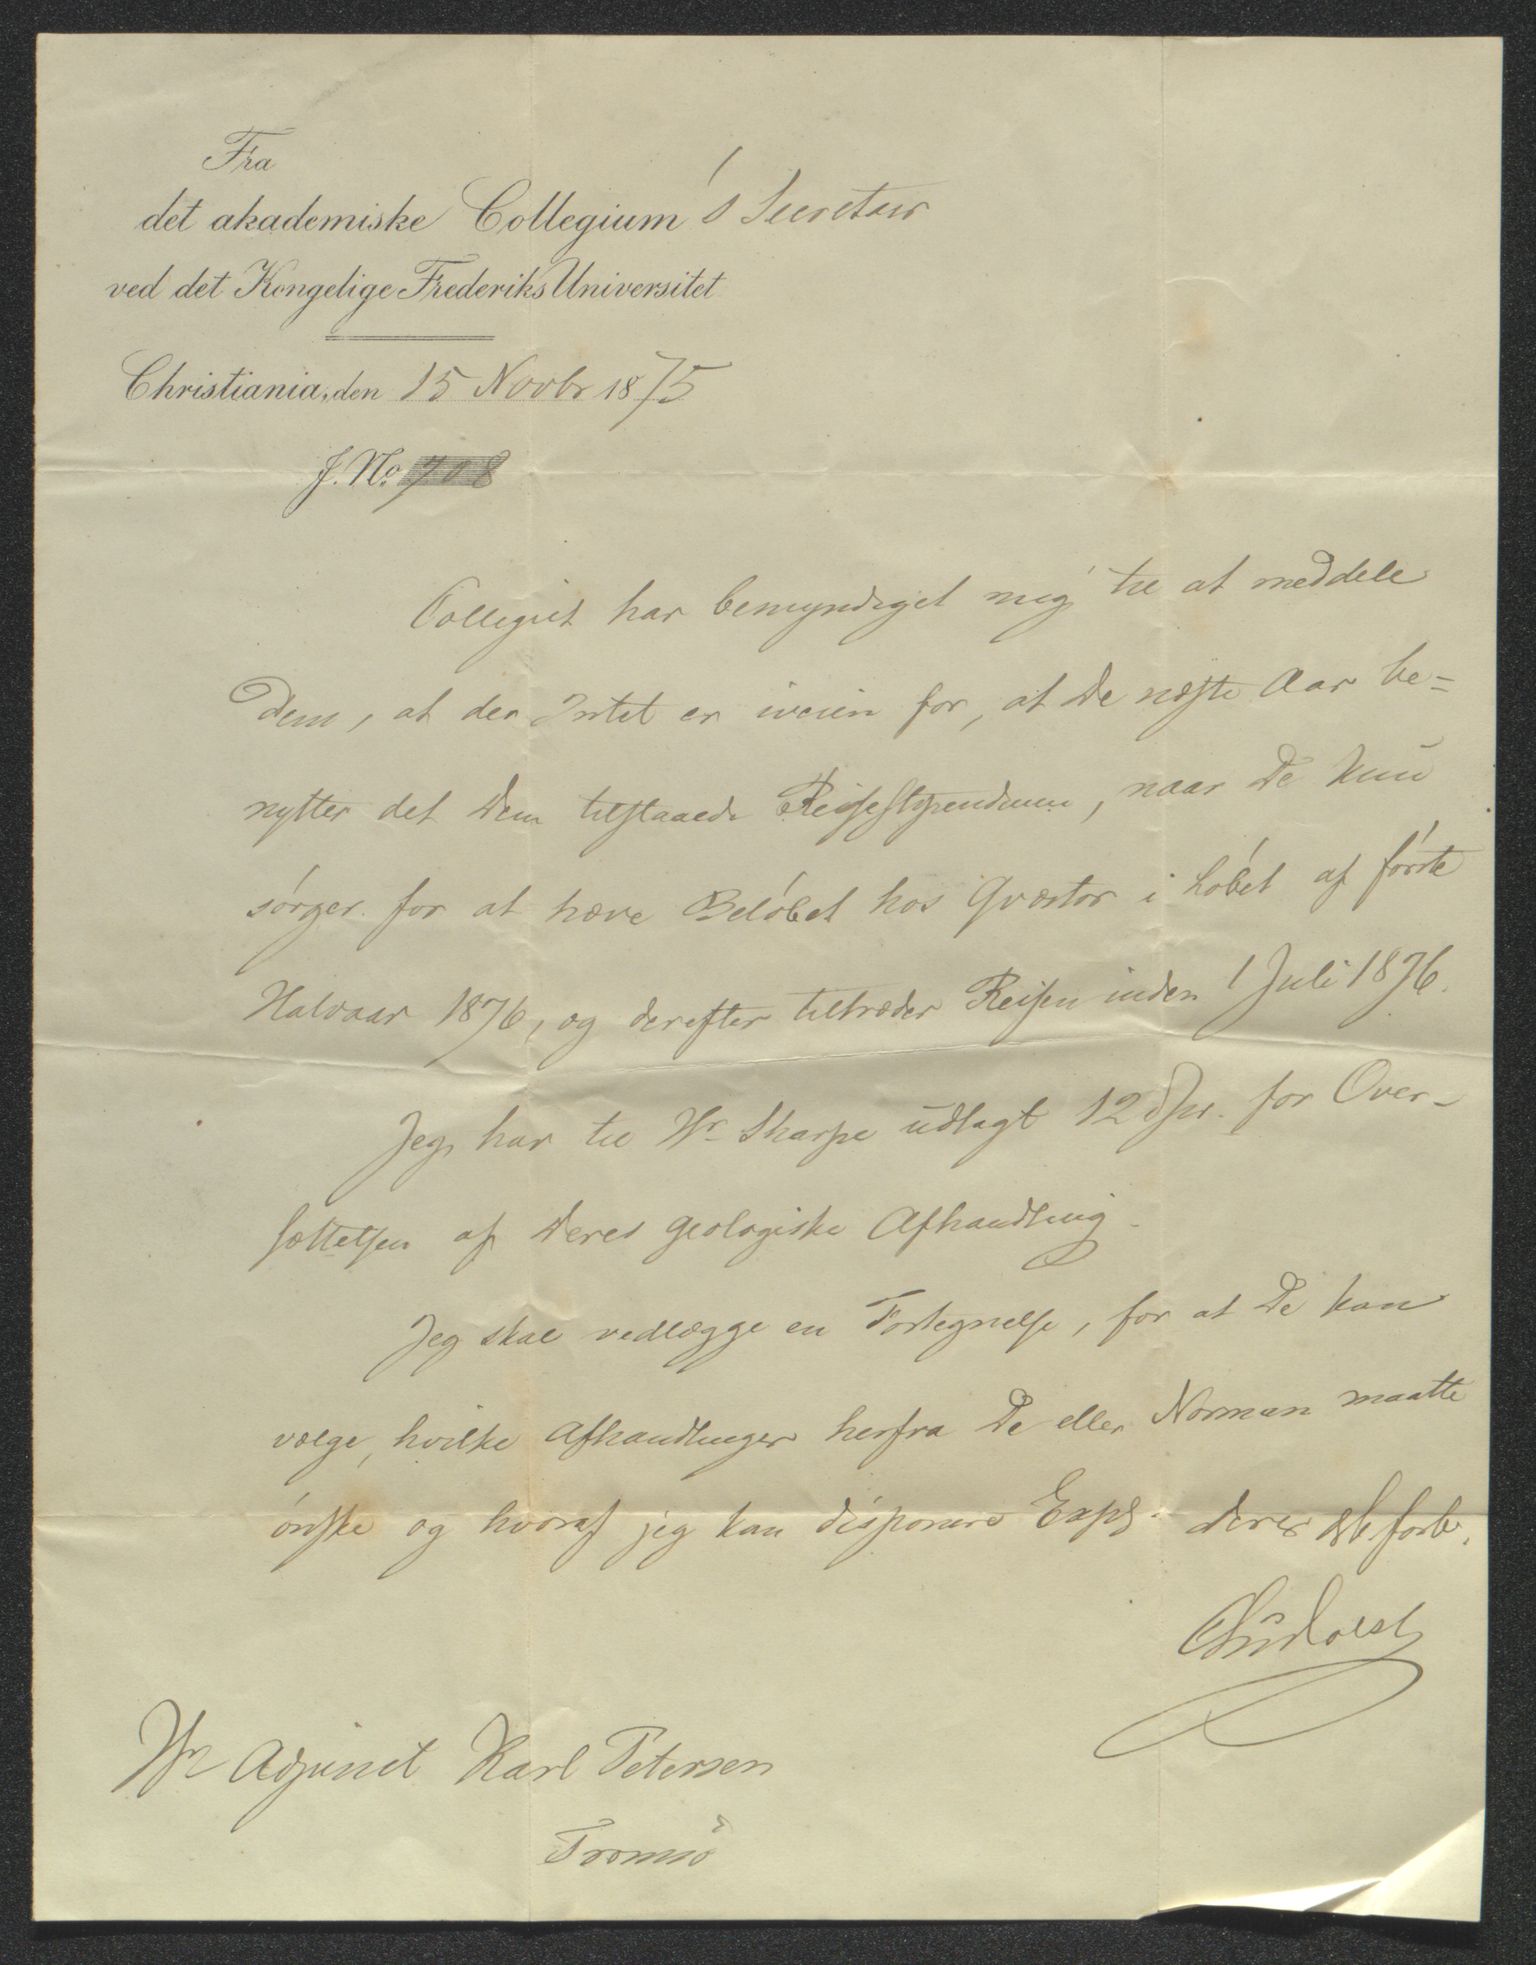 Fra
det akademiske Collegium's Secretær
ved det Kongelige Frederiks Universitet
Christiania, den 15 Novbr 1875
J. No. 708
Collegiet har bemyndiget mig til at meddele
Dem, at der Intet er iveien for, at De næste Aar be-
nytter det Dem tilstaaede Reisestipendium, naar De kun
sørger for at hæve Beløbet hos Qvæstor i Løbet af første
Halvaar 1876, og derefter tiltræder Reisen inden 1 Juli 1876.
Jeg har til Hr Sharpe udlagt 12 Spr. for Over-
sættelsen af Deres geologiske Afhandling.
Jeg skal vedlægge en Fortegnelse, for at De kan
vælge, hvilke Afhandlinger herfra De eller Norman maatte
ønske og hvoraf jeg kan disponere Expl. Deres forb.
Chr Holst
Hr Adjunct Karl Petersen
Tromsø